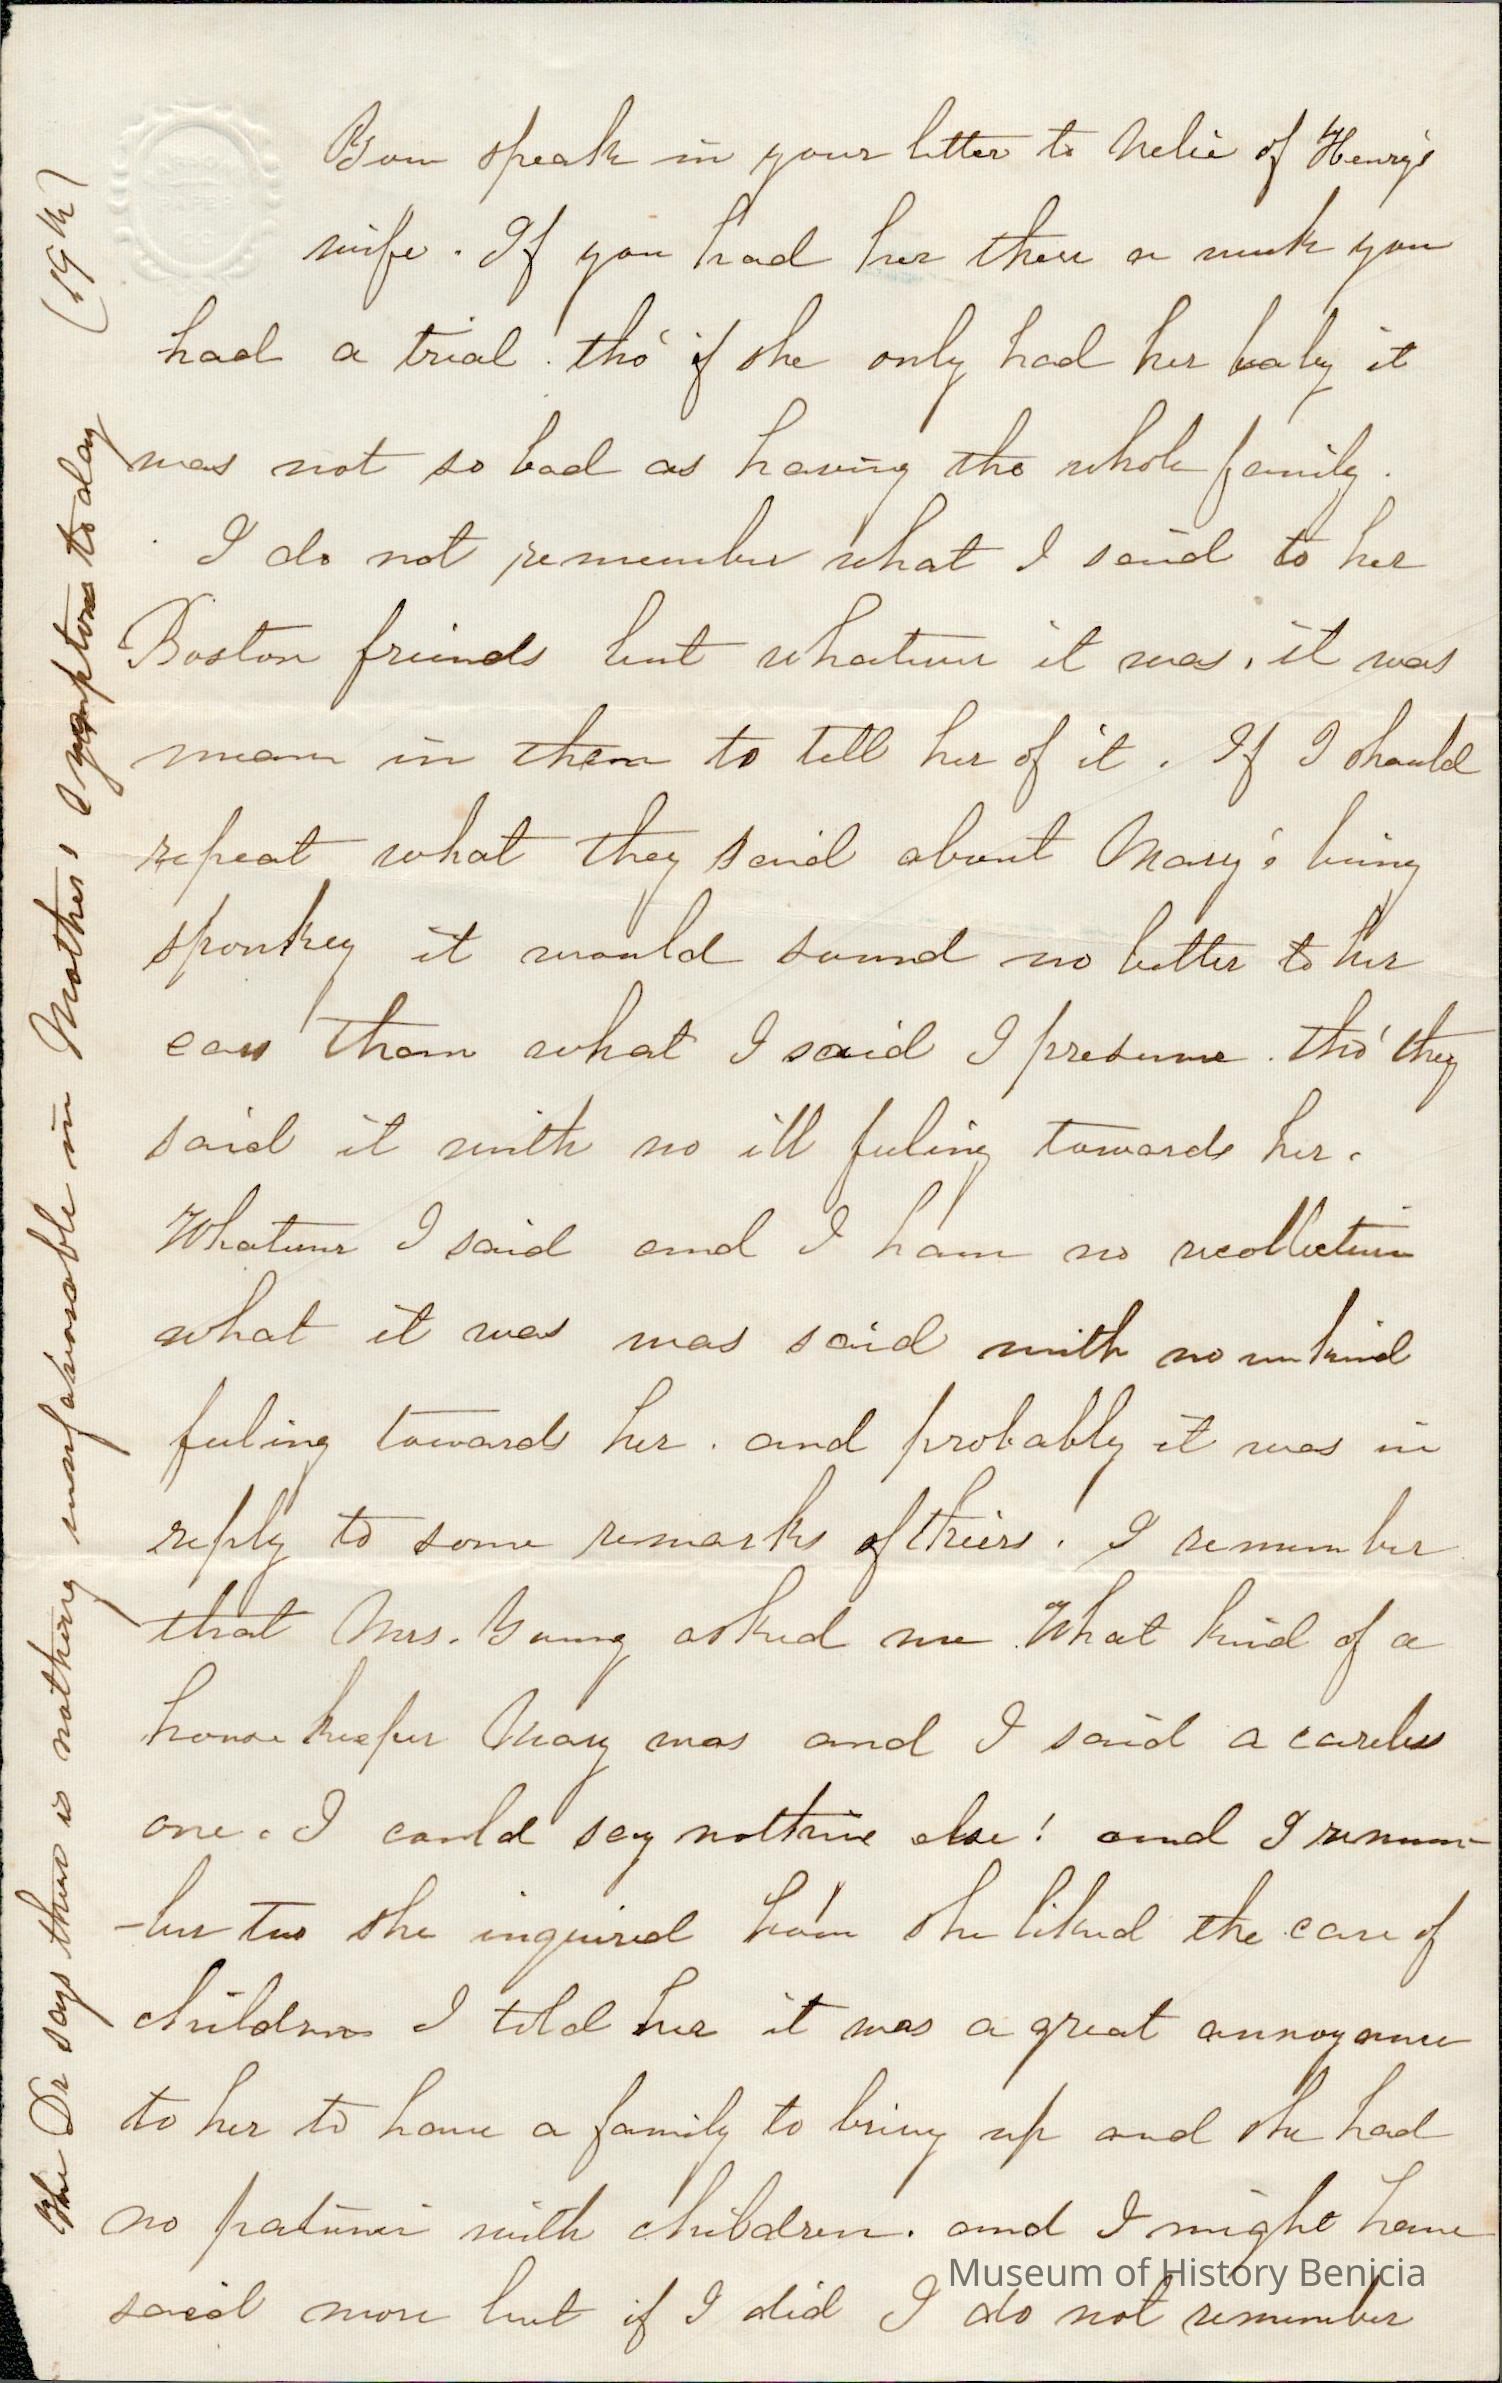 You speak in your letter to Nelie of Henry's
wife. If you had her there a week you
had a trial. tho' if she only had her baby it
was not so bad as having the whole family.
I do not remember what I said to her
Boston friends but whatever it was, it was
mean in them to tell her of it. If I should
repeat what they said about Mary's being
spunkey it would sound no better to her
ears than what I said I presume. tho' they
said it with no ill feeling towards her.
Whatever I said and I have no recollection
what it was was said with no unkind
feeling towards her. and probably it was in
reply to some remarks of theirs. I remember
that Mrs. Young asked me What kind of a
house keeper Mary was and I said a careless
one. I could say nothing else! and I remem-
-ber too she inquired how she liked the care of
children I told her it was a great annoyance
to her to have a family to bring up and she had
no patience with children. and I might have
said more but if I did I do not remember
The Dr says there is nothing unfavorable in Mother's symptoms today (19th)
Museum of History Benicia